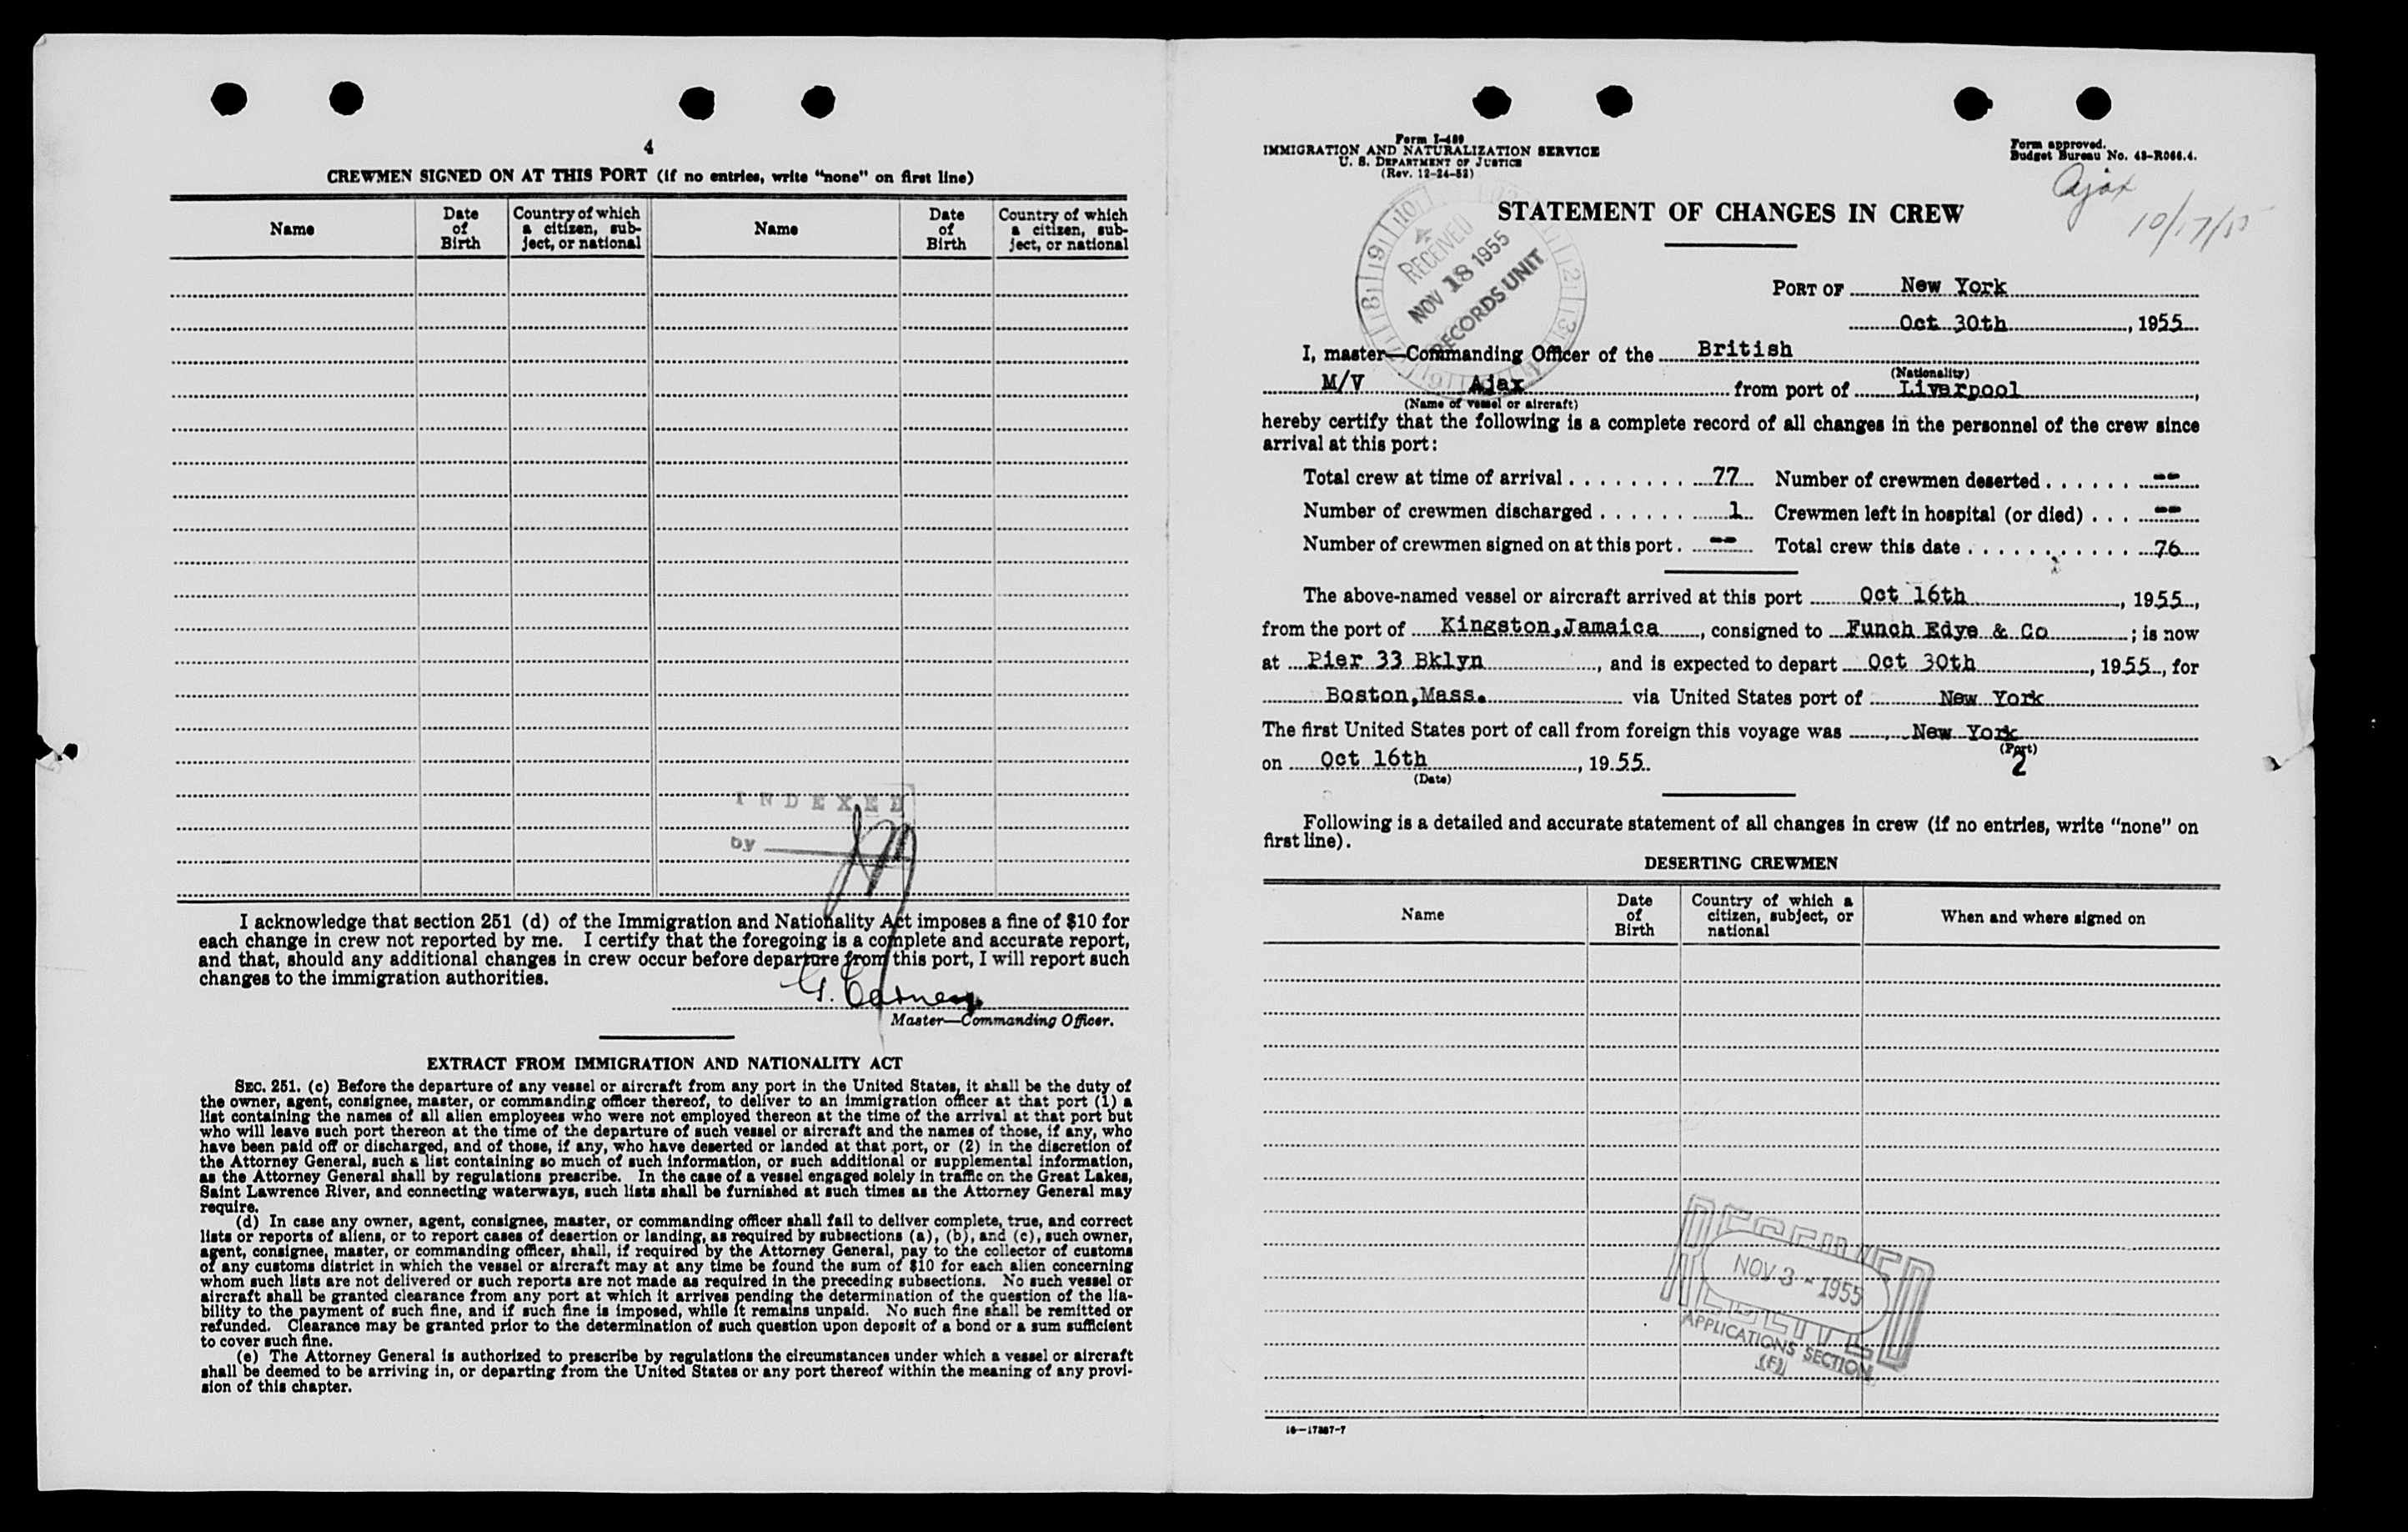 4
CREWMEN SIGNED ON AT THIS PORT (if no entries, write "none" on first line)
Name
Date of Birth
Country of which a citizen, subject, or national
Name
Date of Birth
Country of which a citizen, subject, or national
INDEXED
by
I acknowledge that section 251 (d) of the Immigration and Nationality Act imposes a fine of $10 for
each change in crew not reported by me. I certify that the foregoing is a complete and accurate report,
and that, should any additional changes in crew occur before departure from this port, I will report such
changes to the immigration authorities.
Master—Commanding Officer.
EXTRACT FROM IMMIGRATION AND NATIONALITY ACT
SEC. 251. (c) Before the departure of any vessel or aircraft from any port in the United States, it shall be the duty of
the owner, agent, consignee, master, or commanding officer thereof, to deliver to an immigration officer at that port (1) a
list containing the names of all alien employees who were not employed thereon at the time of the arrival at that port but
who will leave such port thereon at the time of the departure of such vessel or aircraft and the names of those, if any, who
have been paid off or discharged, and of those, if any, who have deserted or landed at that port, or (2) in the discretion of
the Attorney General, such a list containing so much of such information, or such additional or supplemental information,
as the Attorney General shall by regulations prescribe. In the case of a vessel engaged solely in traffic on the Great Lakes,
Saint Lawrence River, and connecting waterways, such lists shall be furnished at such times as the Attorney General may
require.
(d) In case any owner, agent, consignee, master, or commanding officer shall fail to deliver complete, true, and correct
lists or reports of aliens, or to report cases of desertion or landing, as required by subsections (a), (b), and (c), such owner,
agent, consignee, master, or commanding officer, shall, if required by the Attorney General, pay to the collector of customs
of any customs district in which the vessel or aircraft may at any time be found the sum of $10 for each alien concerning
whom such lists are not delivered or such reports are not made as required in the preceding subsections. No such vessel or
aircraft shall be granted clearance from any port at which it arrives pending the determination of the question of the lia-
bility to the payment of such fine, and if such fine is imposed, while it remains unpaid. No such fine shall be remitted or
refunded. Clearance may be granted prior to the determination of such question upon deposit of a bond or a sum sufficient
to cover such fine.
(e) The Attorney General is authorized to prescribe by regulations the circumstances under which a vessel or aircraft
shall be deemed to be arriving in, or departing from the United States or any port thereof within the meaning of any provi-
sion of this chapter.
Form I-489
IMMIGRATION AND NATURALIZATION SERVICE
U. S. DEPARTMENT OF JUSTICE
(Rev. 12-24-52)
Form approved.
Budget Bureau No. 43-R066.4.
Ajax
10/17/55
STATEMENT OF CHANGES IN CREW
RECEIVED
NOV 18 1955
RECORDS UNIT
PORT OF New York
Oct 30th, 1955
I, master—Commanding Officer of the British
(Nationality)
M/V Ajax from port of Liverpool,
(Name of vessel or aircraft)
hereby certify that the following is a complete record of all changes in the personnel of the crew since
arrival at this port:
Total crew at time of arrival 77 Number of crewmen deserted --
Number of crewmen discharged 1 Crewmen left in hospital (or died) --
Number of crewmen signed on at this port -- Total crew this date 76
The above-named vessel or aircraft arrived at this port Oct 16th, 1955,
from the port of Kingston,Jamaica, consigned to Funch Edye & Co; is now
at Pier 33 Bklyn, and is expected to depart Oct 30th, 1955, for
Boston,Mass. via United States port of New York
The first United States port of call from foreign this voyage was New York
(Port)
on Oct 16th, 1955.
(Date)
2
Following is a detailed and accurate statement of all changes in crew (if no entries, write "none" on
first line).
DESERTING CREWMEN
Name
Date of Birth
Country of which a citizen, subject, or national
When and where signed on
RECEIVED
NOV 3 - 1955
APPLICATIONS SECTION
(F)